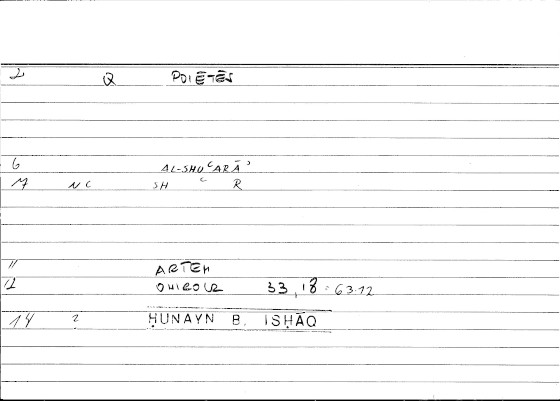 2 Q POIĒTĒS
6 AL-SHUʿARĀʾ
7 NC SH ʿ R
11 ARTEM
12 ONIROCR 33,18 = 63.12
14 2 ḤUNAYN B. ISḤĀQ